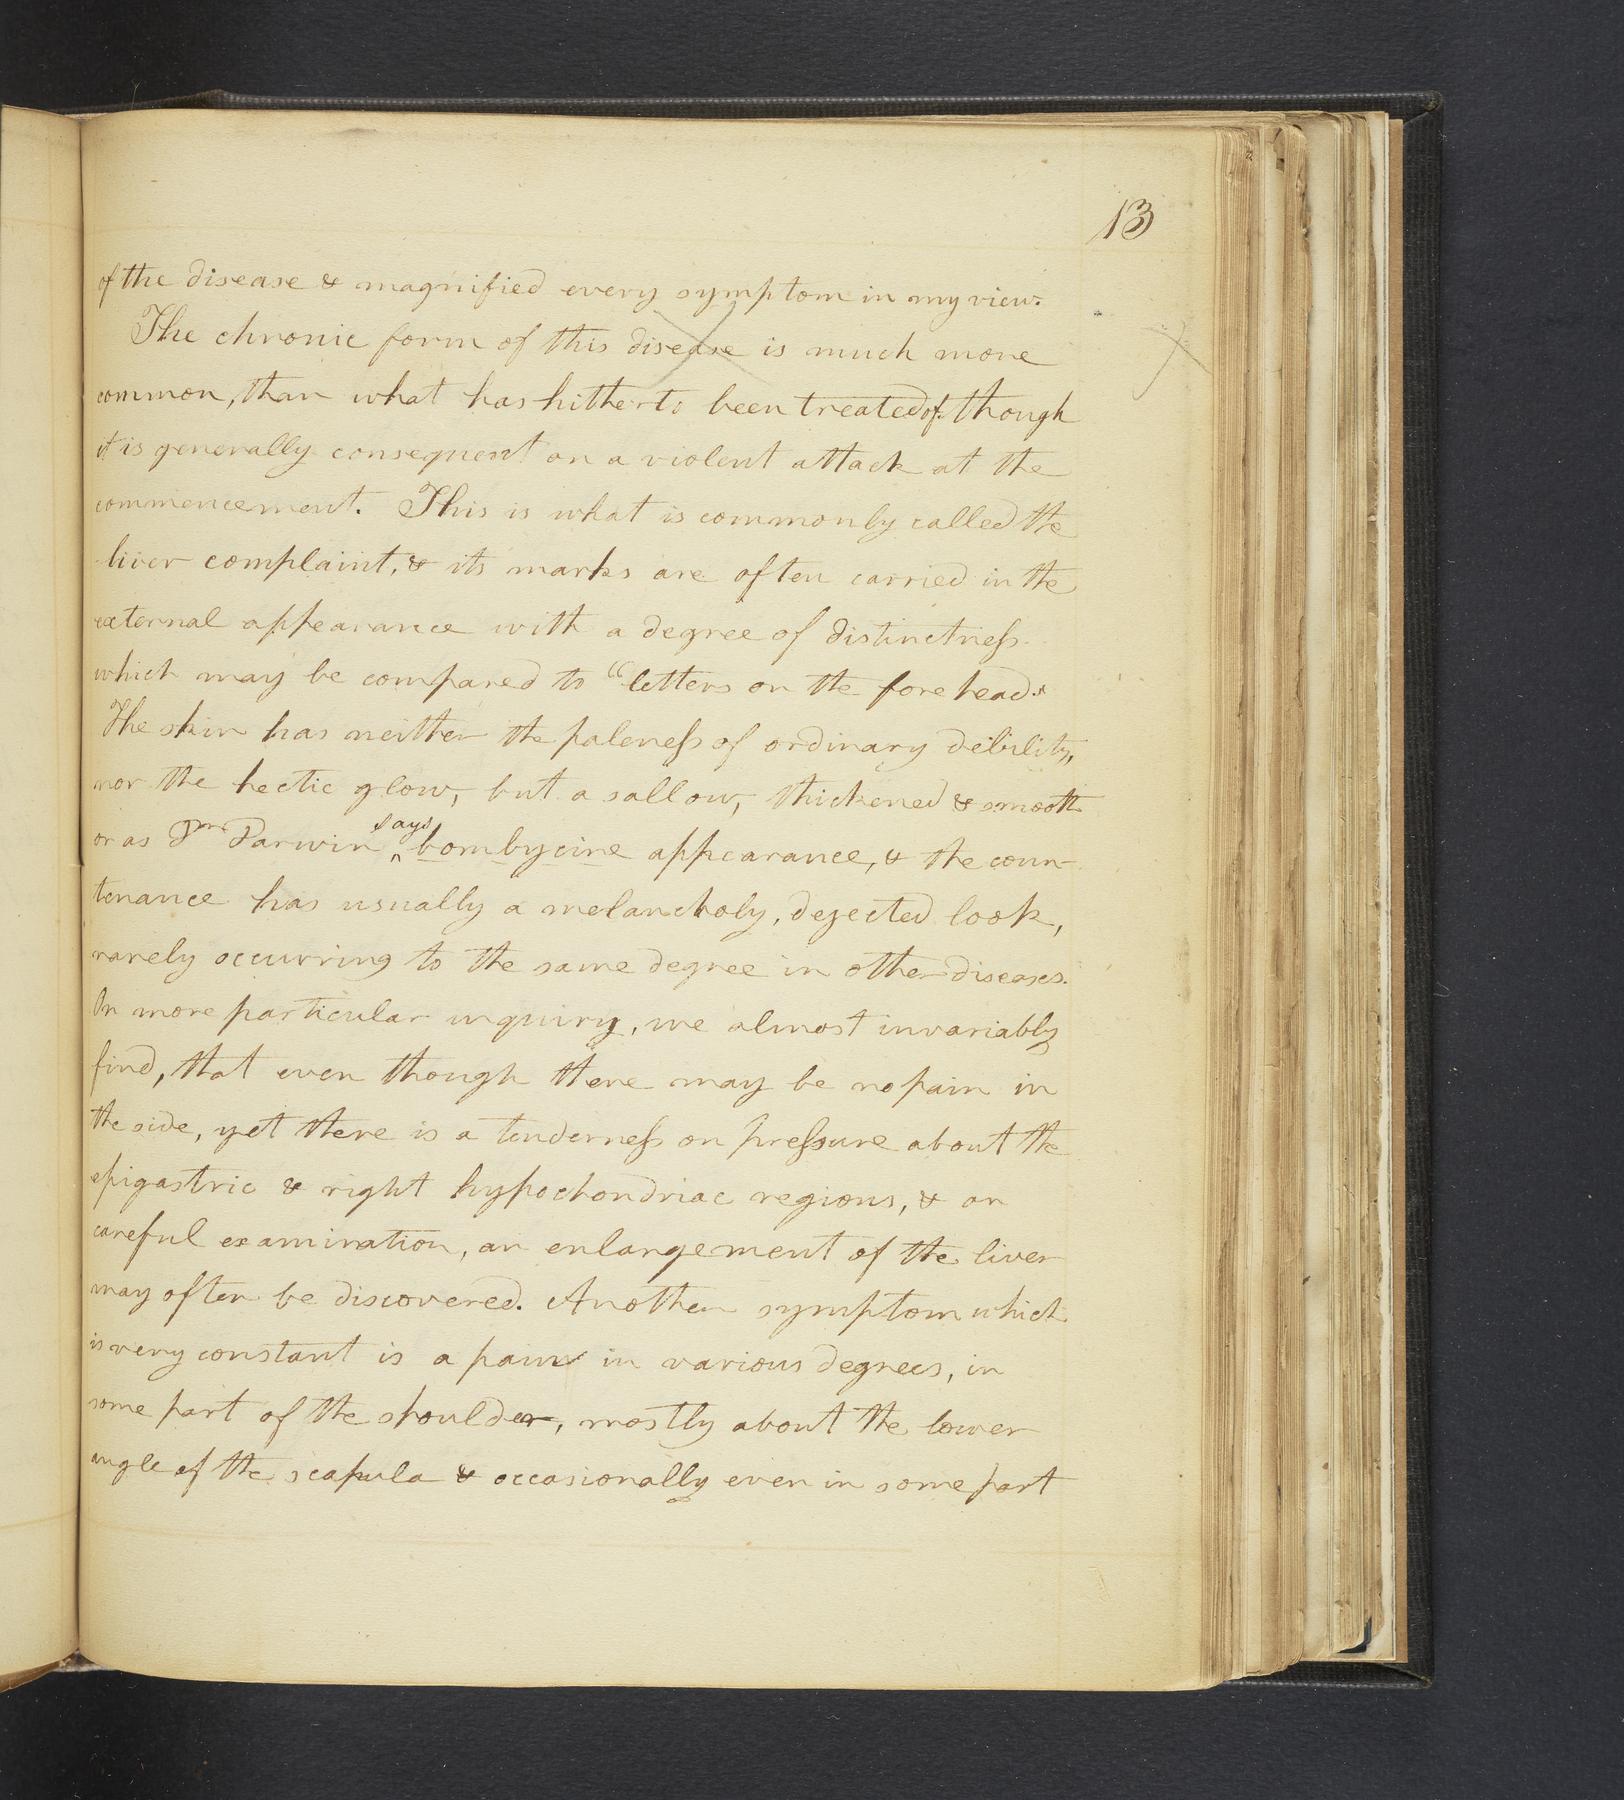 13
of the disease & magnified every symptom in my view.
The chronic form of this disease is much more
common, than what has hitherto been treated of. though
it is generally consequent on a violent attack at the
commencement. This is what is commonly called the
liver complaint, & its marks are often carried in the
external appearance with a degree of distinctness
which may be compared to "letters on the forehead."
The skin has neither the paleness of ordinary debility,
nor the hectic glow, but a sallow, thickened & smooth
or as Dr Darwin says bombycine appearance, & the coun-
tenance has usually a melancholy, dejected look,
rarely occurring to the same degree in other diseases.
On more particular inquiry, we almost invariably
find, that even though there may be no pain in
the side, yet there is a tenderness on pressure about the
epigastric & right hypochondriac regions, & on
careful examination, an enlargement of the liver
may often be discovered. Another symptom which
is very constant is a pain in various degrees, in
some part of the shoulder, mostly about the lower
angle of the scapula & occasionally even in some part